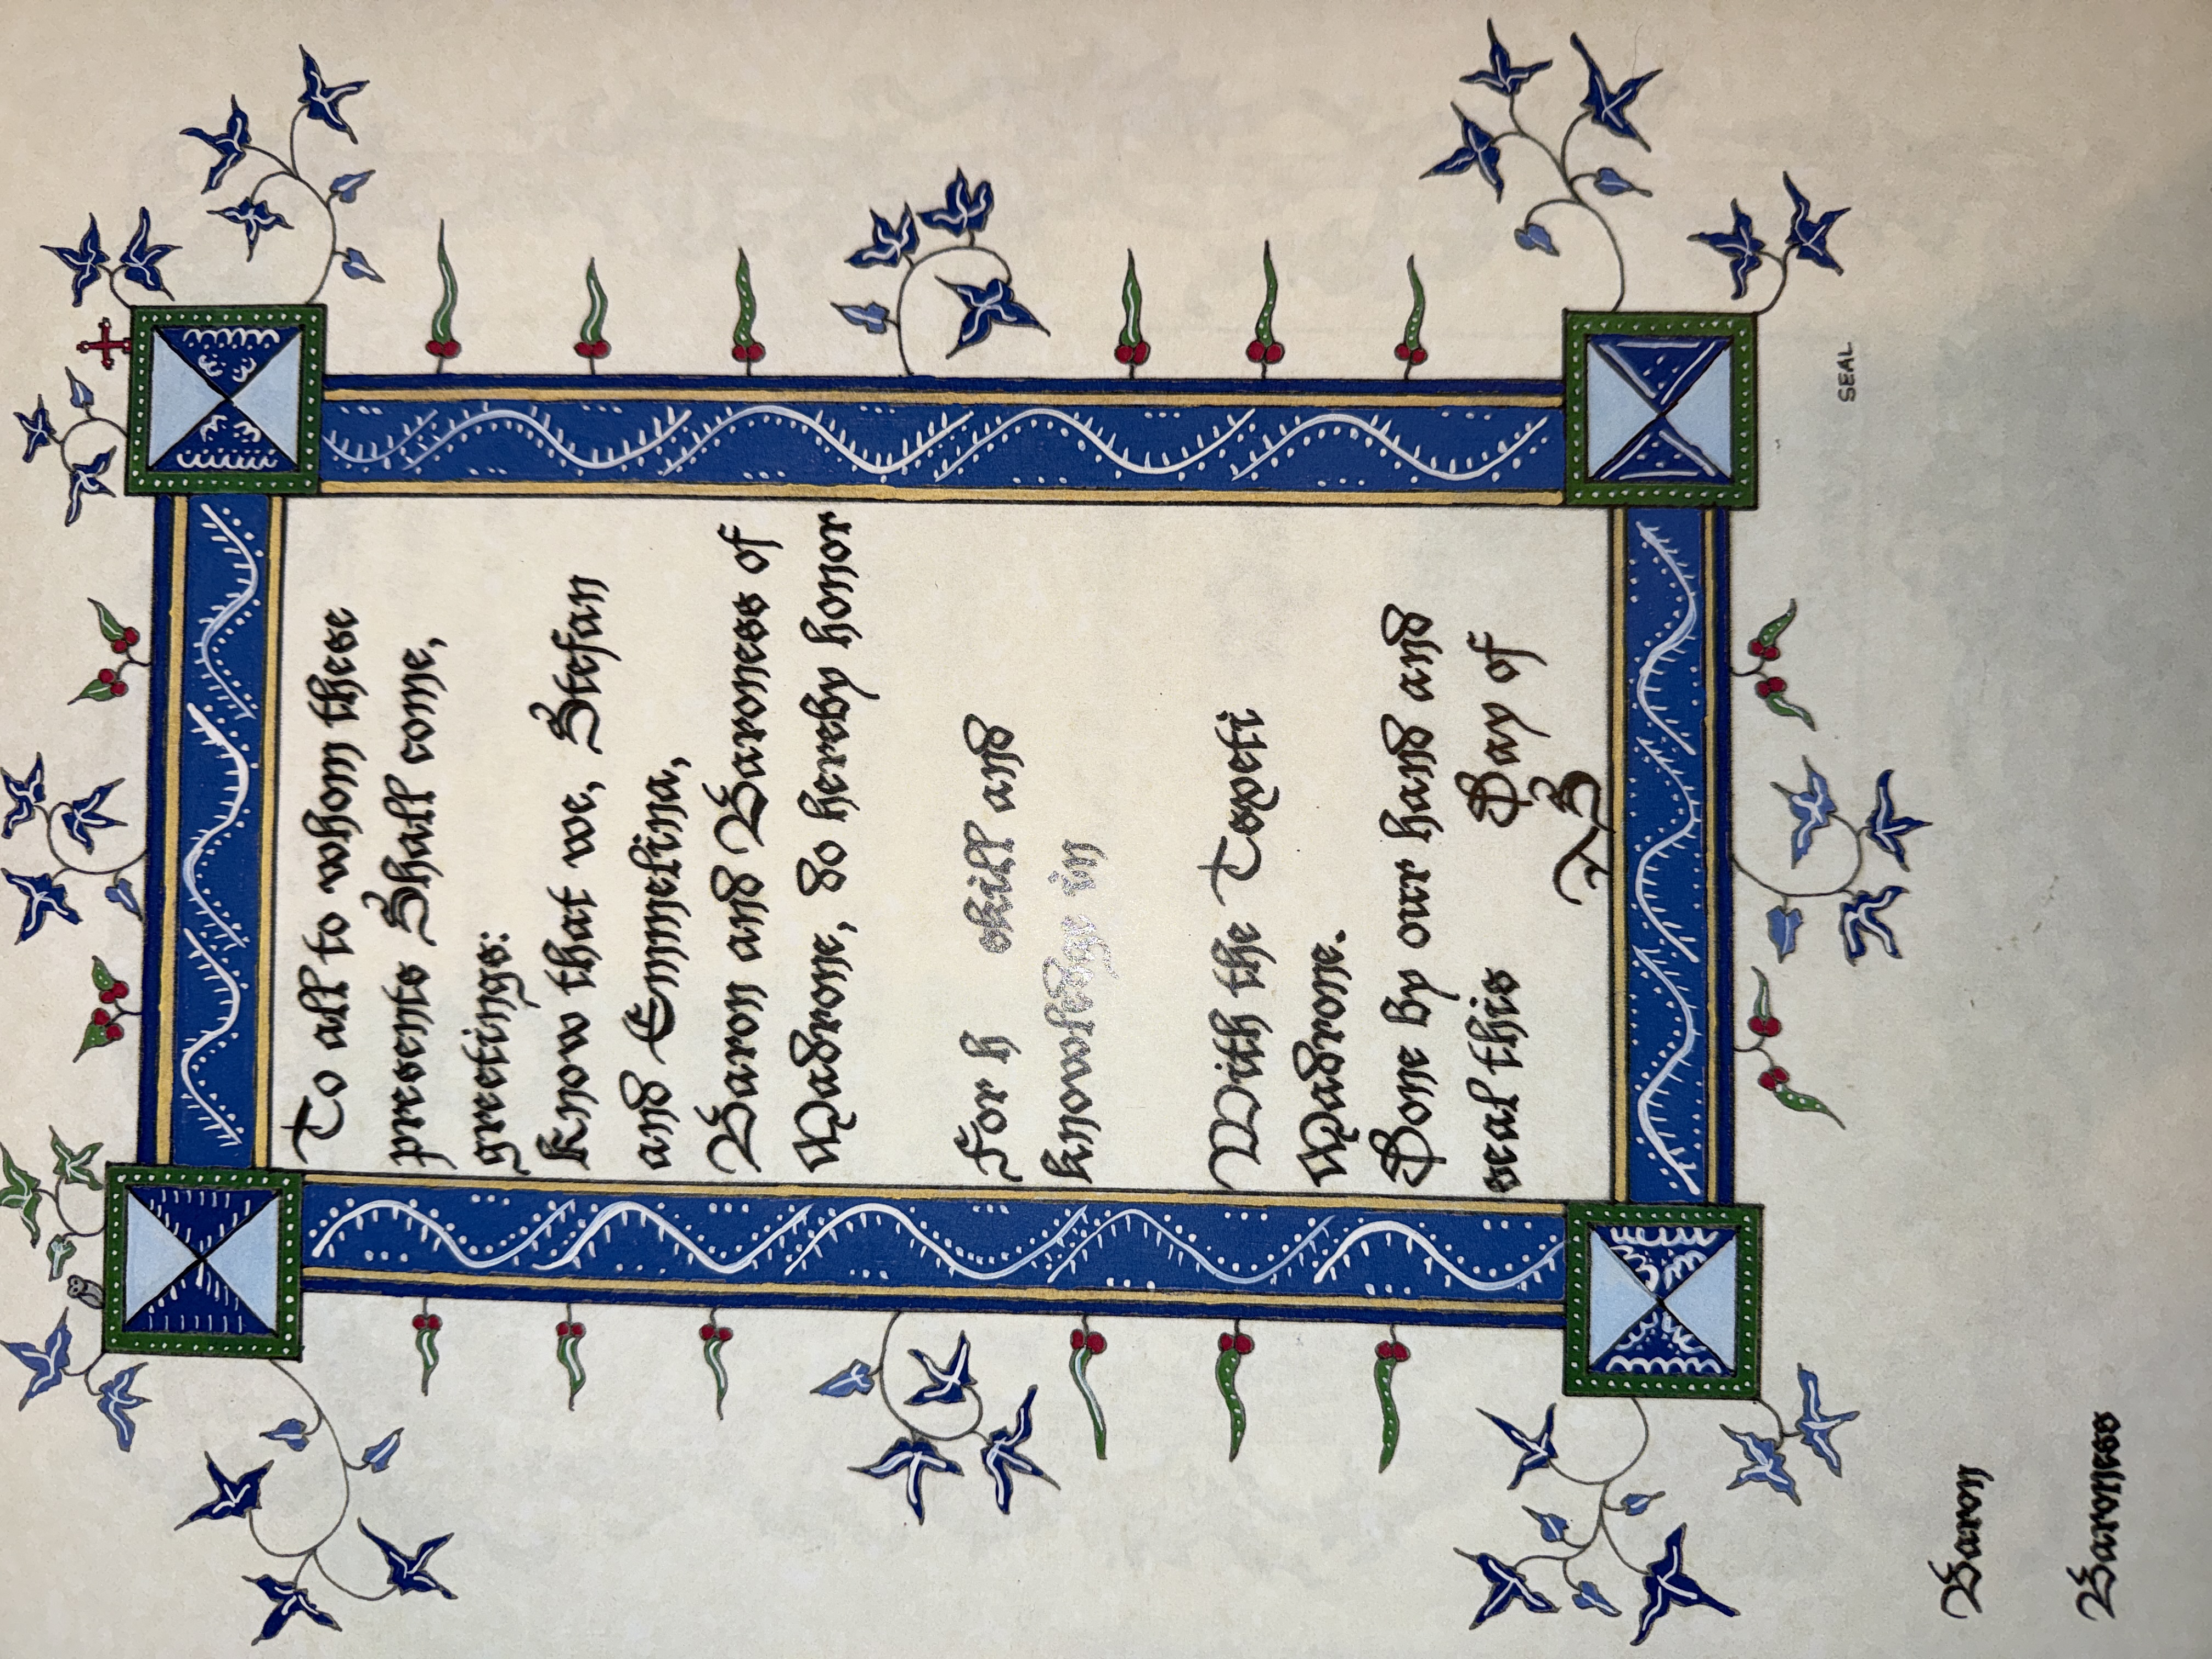 To all to whom these
presents Shall come,
greetings:
Know that we, Stefan
and Emmelina,
Baron and Baroness of
Madrone, do hereby honor
For h skill and
knowledge in
With the Towefi
Madrone.
Done by our hand and
seal this Day of
AS
SEAL
Baron
Baroness